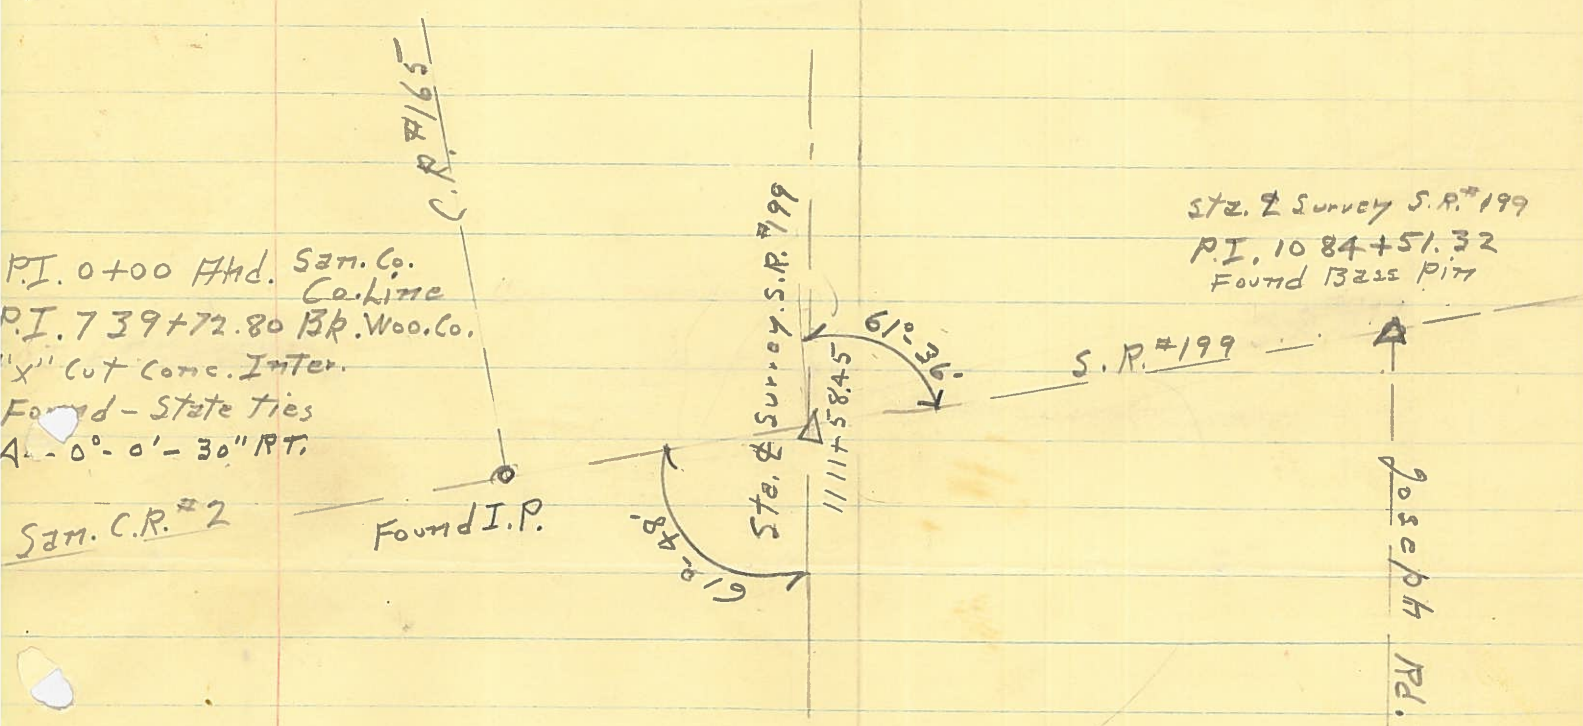 C.R. #165
P.I. 0+00 Ahd. San. Co.
Co. Line
P.I. 739+72.80 Bk. Woo. Co.
"X" Cut Conc. Inter.
Found - State ties
Δ - 0° - 0' - 30" RT.
San. C.R. #2
Found I.P.
Sta. ℄ Survey. S.R. #199
1111+58.45
61°-36'
61°-48'
S.R. #199
Sta. ℄ Survey S.R. #199
P.I. 1084+51.32
Found Bass Pin
Joseph Rd.